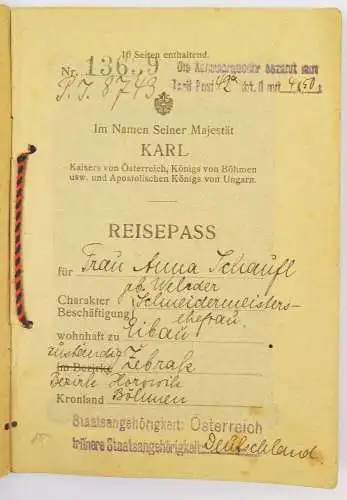 16 Seiten enthaltend.
Nr. 13639
P.J. 8743
Tarif Post 42a lit. 4.50
Im Namen Seiner Majestät
KARL
Kaisers von Österreich, Königs von Böhmen
usw. und Apostolischen Königs von Ungarn.
REISEPASS
für Frau Anna Schaufl
gb.
Charakter Schneidermeisters-
Beschäftigung ehefrau
wohnhaft zu Eibau
zuständig Žebrak
im Bezirke
Bezirk Horowitz
Kronland Böhmen
Staatsangehörigkeit: Österreich
frühere Staatsangehörigkeit: Deutschland